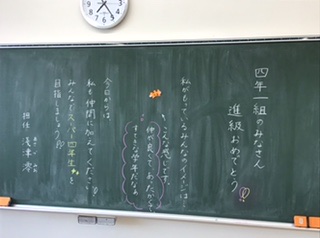 四年一組のみなさん
進級おめでとう
私がもっているみんなのイメージは
こんな感じです。
仲が良くて、あたたかくて
すてきな学年だなぁ
今日からは
私も仲間に加えてください。
みんなでスーパー四年生を
目指しましょう
担任 浅津 澪